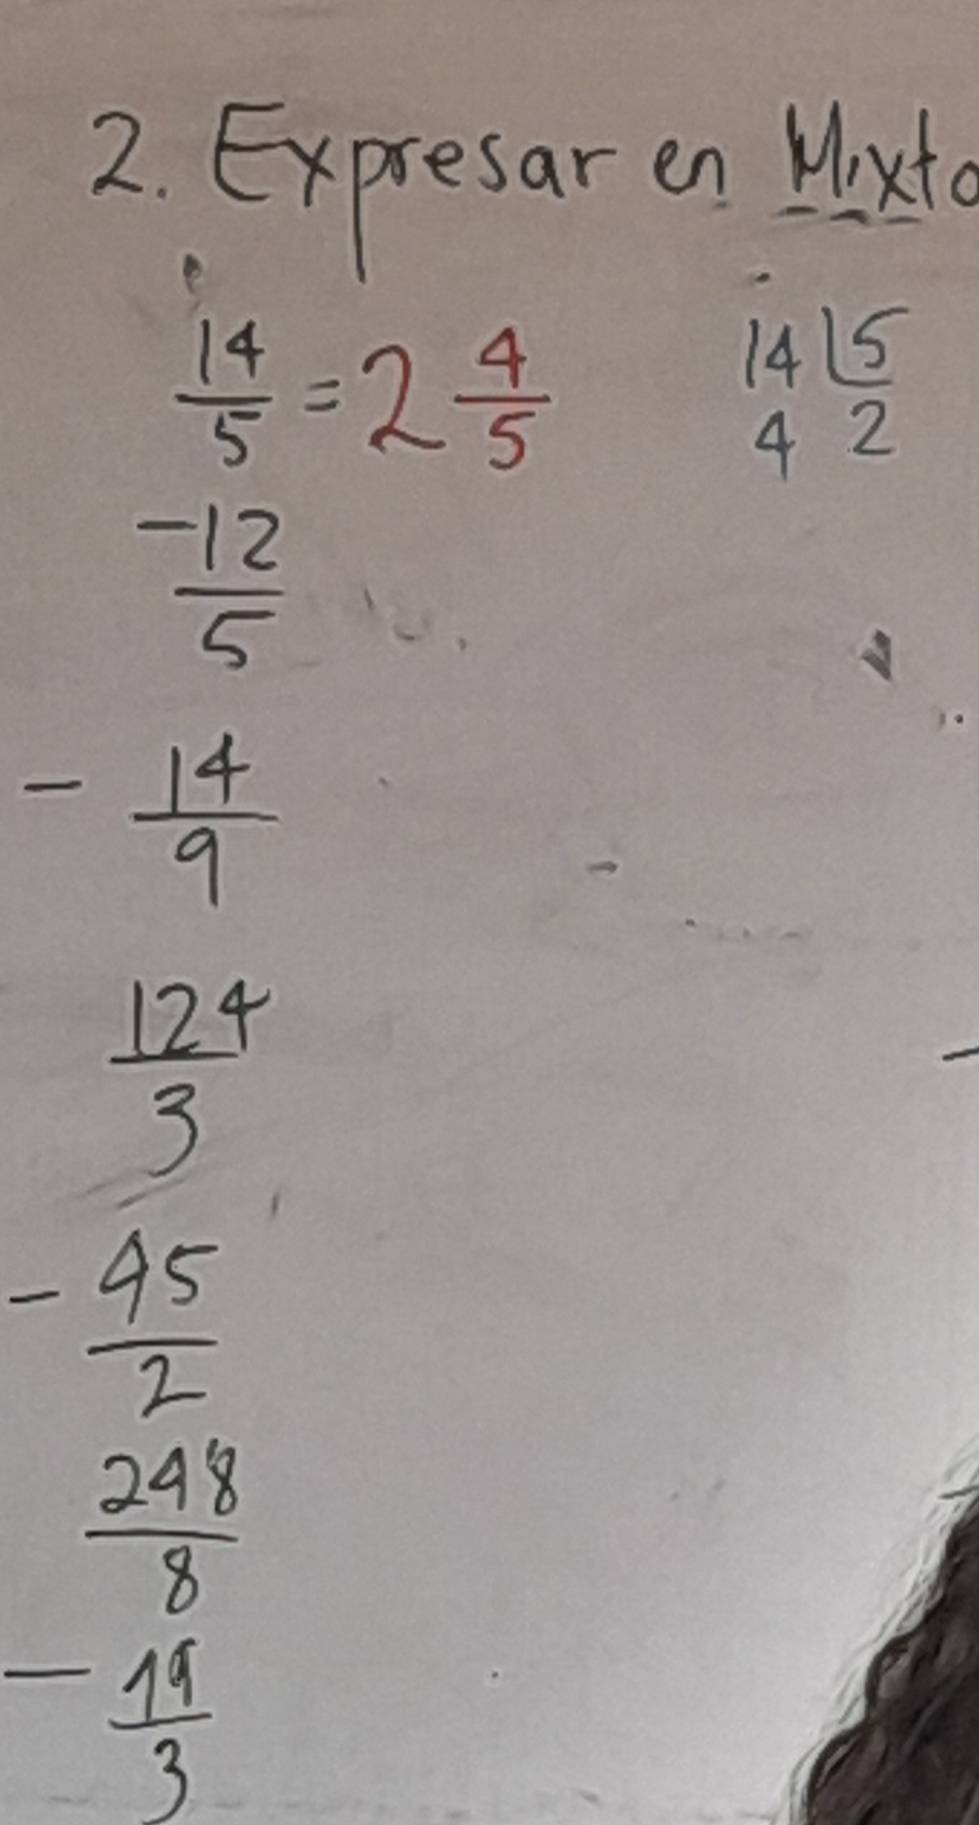 2. Expresar en Mixto
14/5 = 2 4/5    14 | 5
4 2
-12/5
- 14/9
124/3
- 45/2
248/8
- 19/3